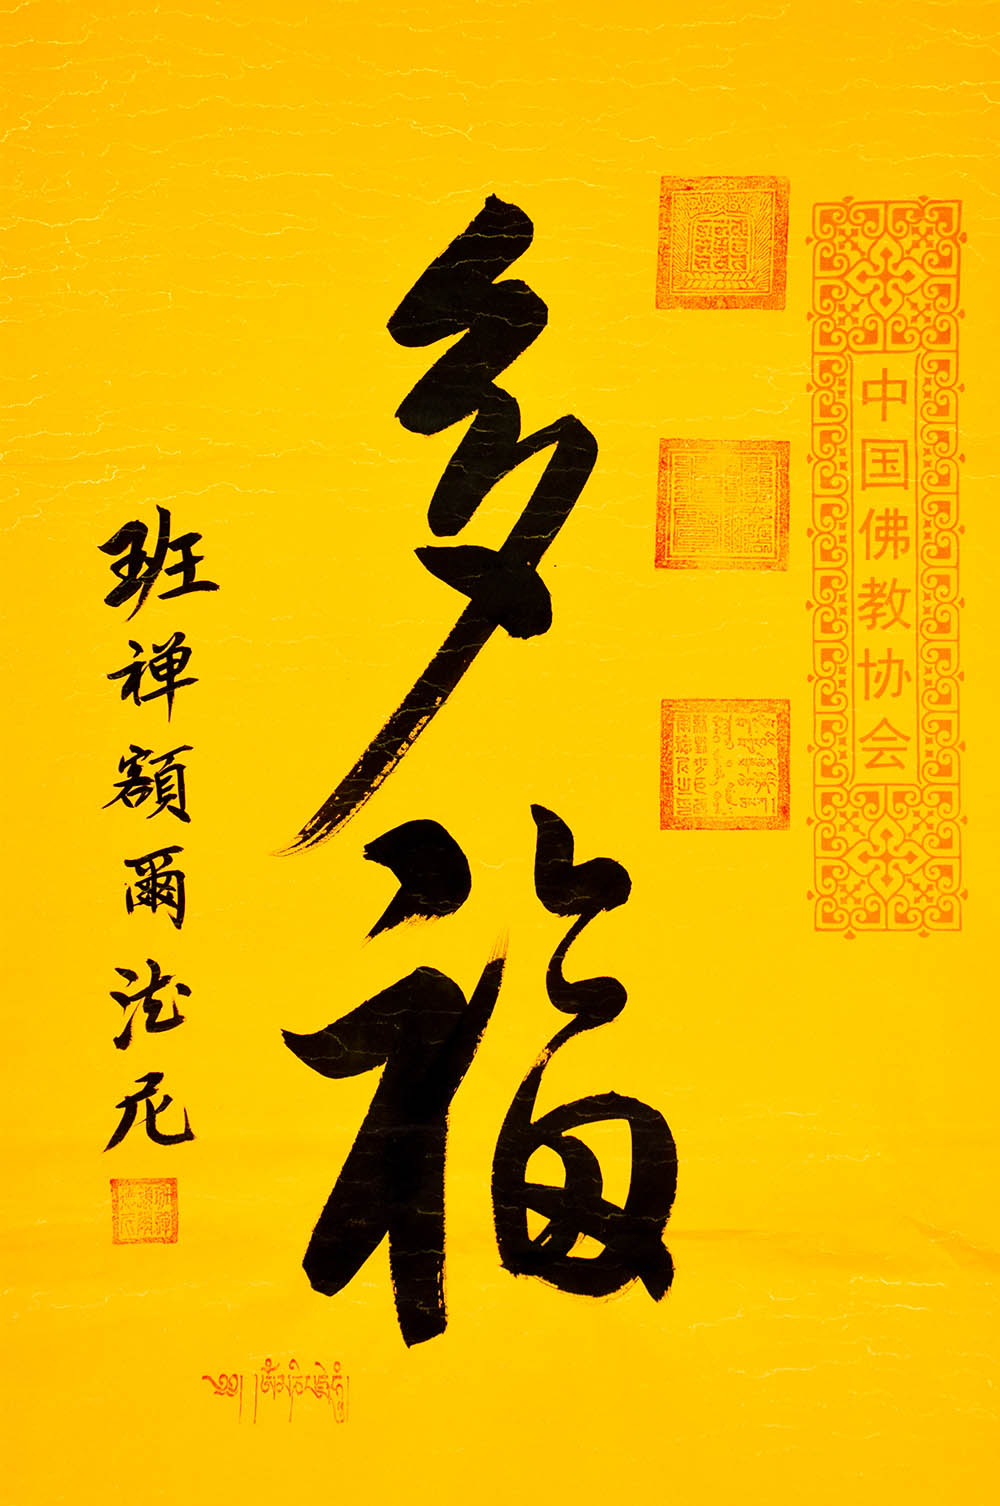 中国佛教协会
多福
班禅額爾德尼
༄༅། །ཨོཾ་མ་ཎི་པདྨེ་ཧཱུྃ།